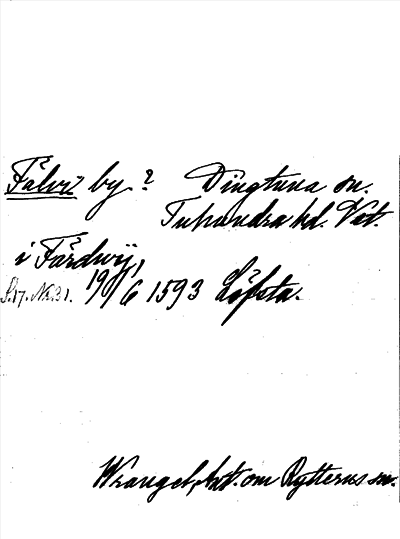 Fålvi by? Dingtuna sn.
Tuhundra hd. Vst.
i Fårdwij,
S.17. No.31. 19/6 1593 Löfsta.
Wrangel, Ant. om Rytterns sn.